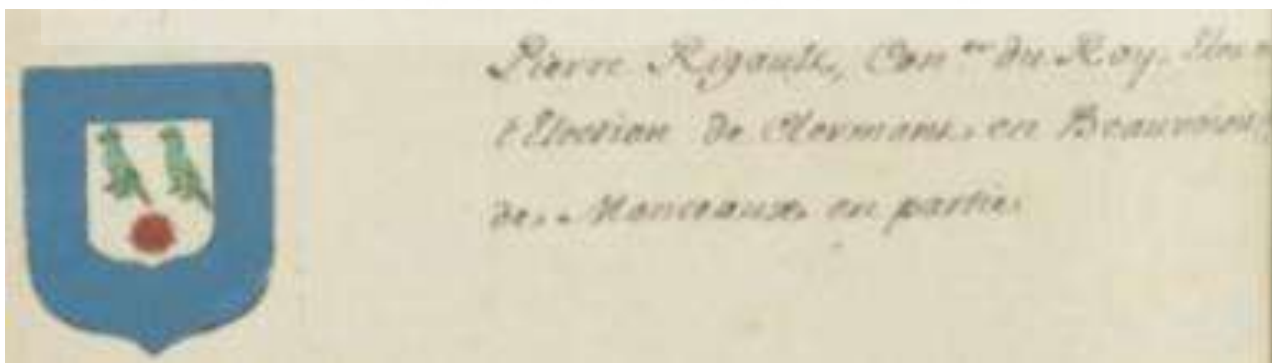 Pierre Rigault, Con.er du Roy, Eleu
l'Election de Clermont en Beauvoisis,
de Monceaux en partie